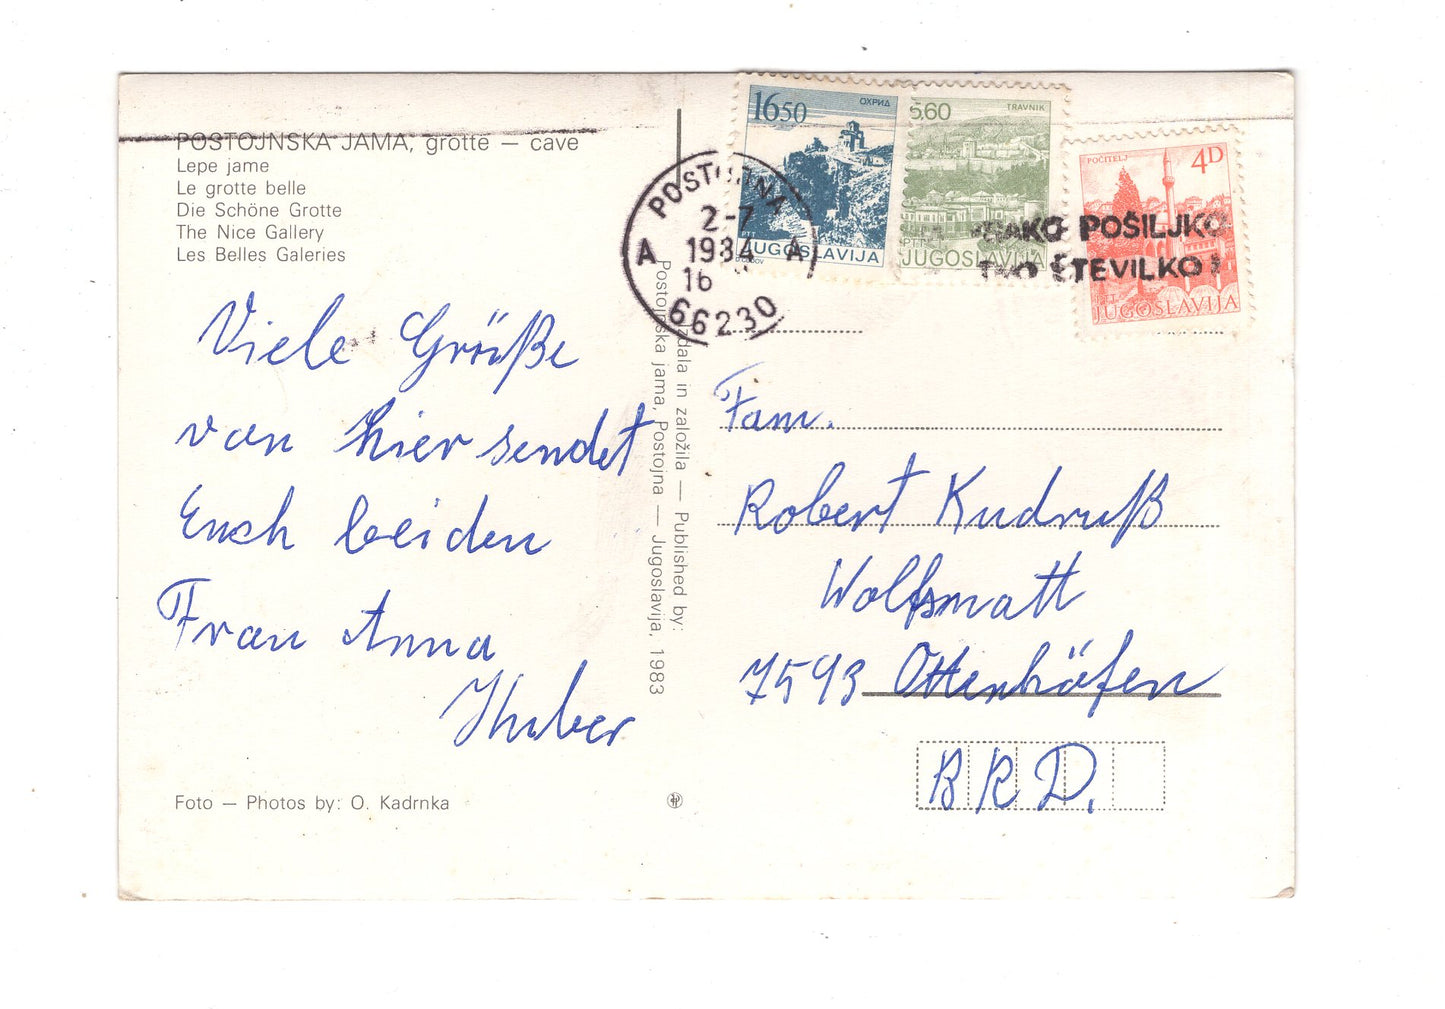 POSTOJNSKA JAMA, grotte — cave
Lepe jame
Le grotte belle
Die Schöne Grotte
The Nice Gallery
Les Belles Galeries
Viele Grüße
von hier sendet
Euch beiden
Frau Anna
Huber
Foto — Photos by: O. Kadrnka
Izdala in založila — Published by:
Postojnska jama, Postojna — Jugoslavija, 1983
POSTOJNA
2-7
1984
A A
16
66230
1650
ОХРИД
JUGOSLAVIJA
5.60
TRAVNIK
PTT
JUGOSLAVIJA
POČITELJ
4D
PTT
JUGOSLAVIJA
POŠILJKO
ŠTEVILKO!
Fam.
Robert Kudruß
Wolfsmatt
7593 Ottenhöfen
BRD.